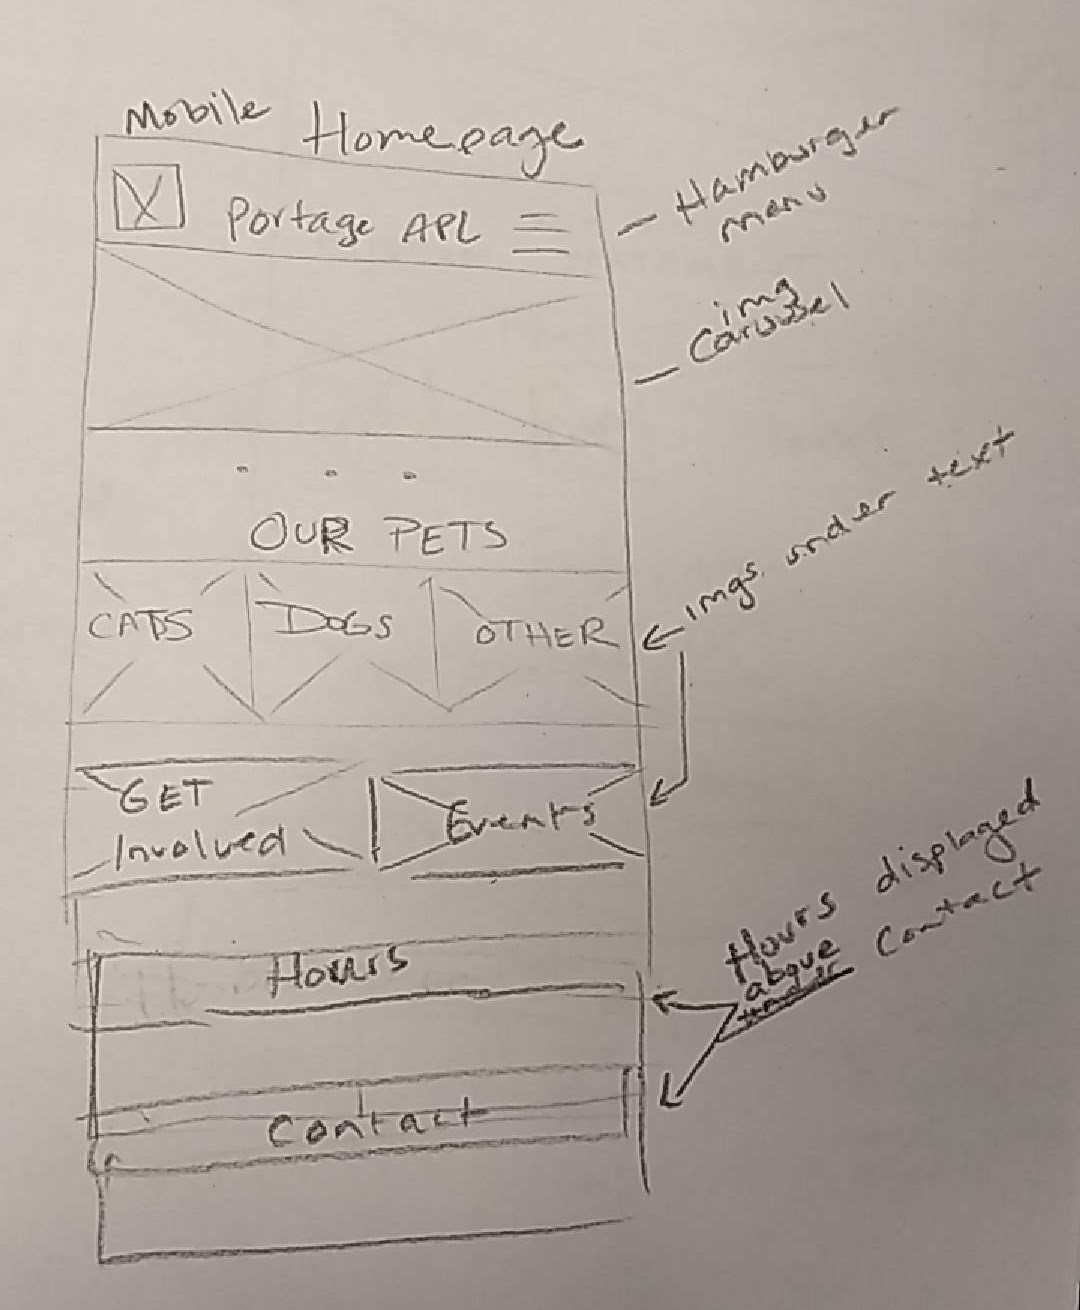 Mobile Homepage
Portage APL
Hamburger
menu
img
Carussel
OUR PETS
CATS DOGS OTHER
imgs under text
GET
Involved
Events
Hours
Hours displayed
above Contact
Contact